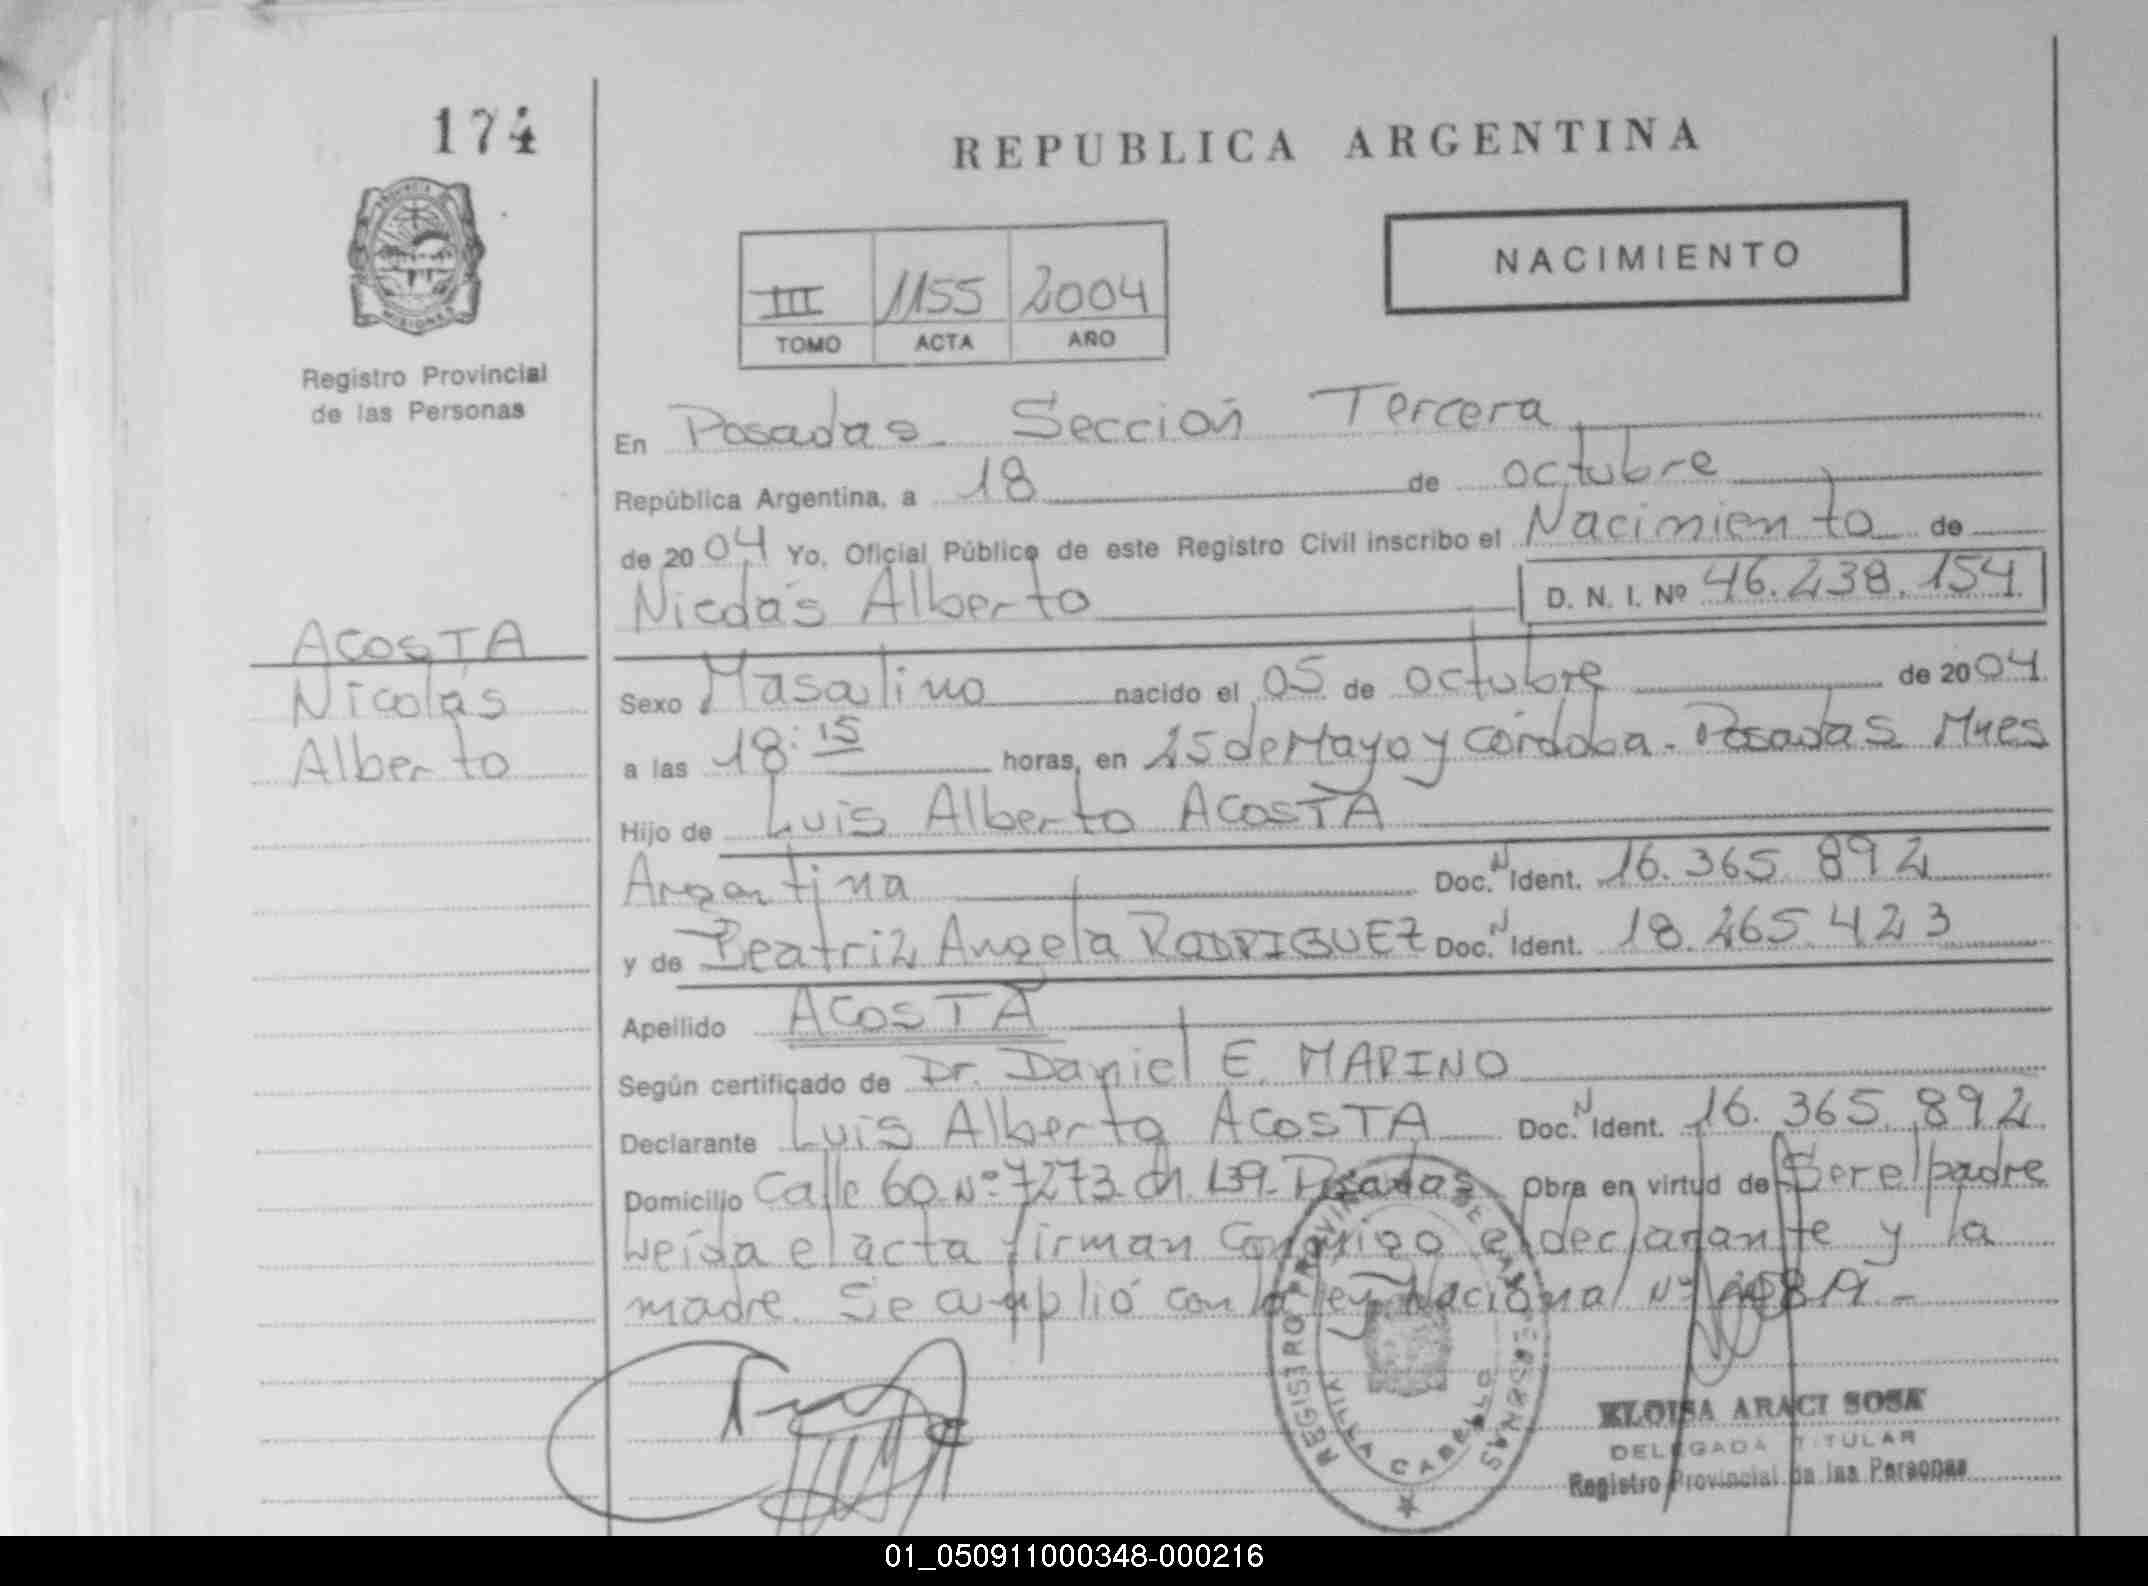 174
REPUBLICA ARGENTINA
PROVINCIA
MISIONES
NACIMIENTO
III 1155 2004
TOMO ACTA AÑO
Registro Provincial
de las Personas
En Posadas Sección Tercera
República Argentina, a 18 de octubre
de 2004 Yo, Oficial Público de este Registro Civil inscribo el Nacimiento de
Nicolás Alberto D. N. I. Nº 46.238.154
ACOSTA
Nicolás
Alberto
Sexo Masculino nacido el 05 de octubre de 2004
a las 18:15 horas, en 25 de Mayo y Córdoba. Posadas Mnes
Hijo de Luis Alberto ACOSTA
Argentina Doc. N Ident. 16.365.892
y de Beatriz Angela RODRIGUEZ Doc. N Ident. 18.265.423
Apellido ACOSTA
Según certificado de Dr. Daniel E. MARINO
Declarante Luis Alberto ACOSTA Doc. N Ident. 16.365.892
Domicilio Calle 60 Nº 7273 ch. 139 - Posadas Obra en virtud de Ser el padre
Leída el acta firman conmigo el declarante y la
madre. Se cumplió con la ley Nacional Nº
REGISTRO PROVINCIAL DE LAS PERSONAS
VILLA CABELLO
ELOISA ARACI SOSA
DELEGADA TITULAR
Registro Provincial de las Personas
01_050911000348-000216